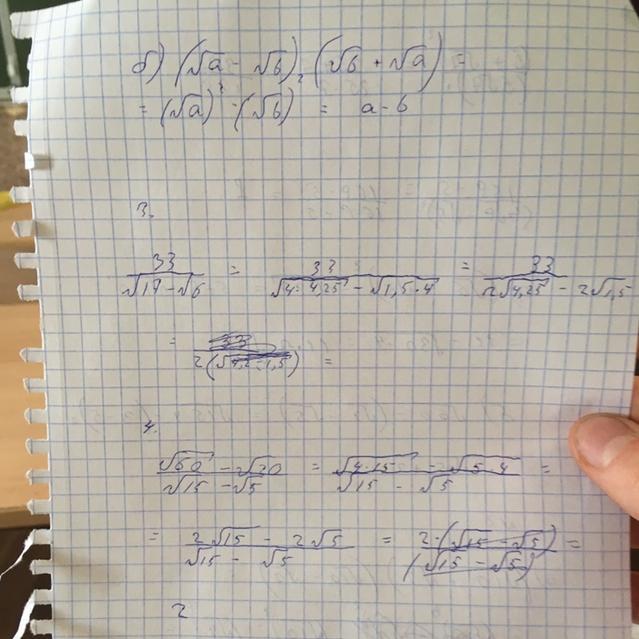 б) (√a - √b) (√b + √a) =
= (√a)² - (√b)² = a - b
3.
33/(√17 - √6) = 33/(√4·4,25 - √1,5·4) = 33/(2√4,25 - 2√1,5)
= 33/(2(√4,2-1,5)) =
4.
(√60 - √20)/(√15 - √5) = (√4·15 - √5·4)/(√15 - √5) =
= (2√15 - 2√5)/(√15 - √5) = 2·(√15 - √5)/(√15 - √5) =
2